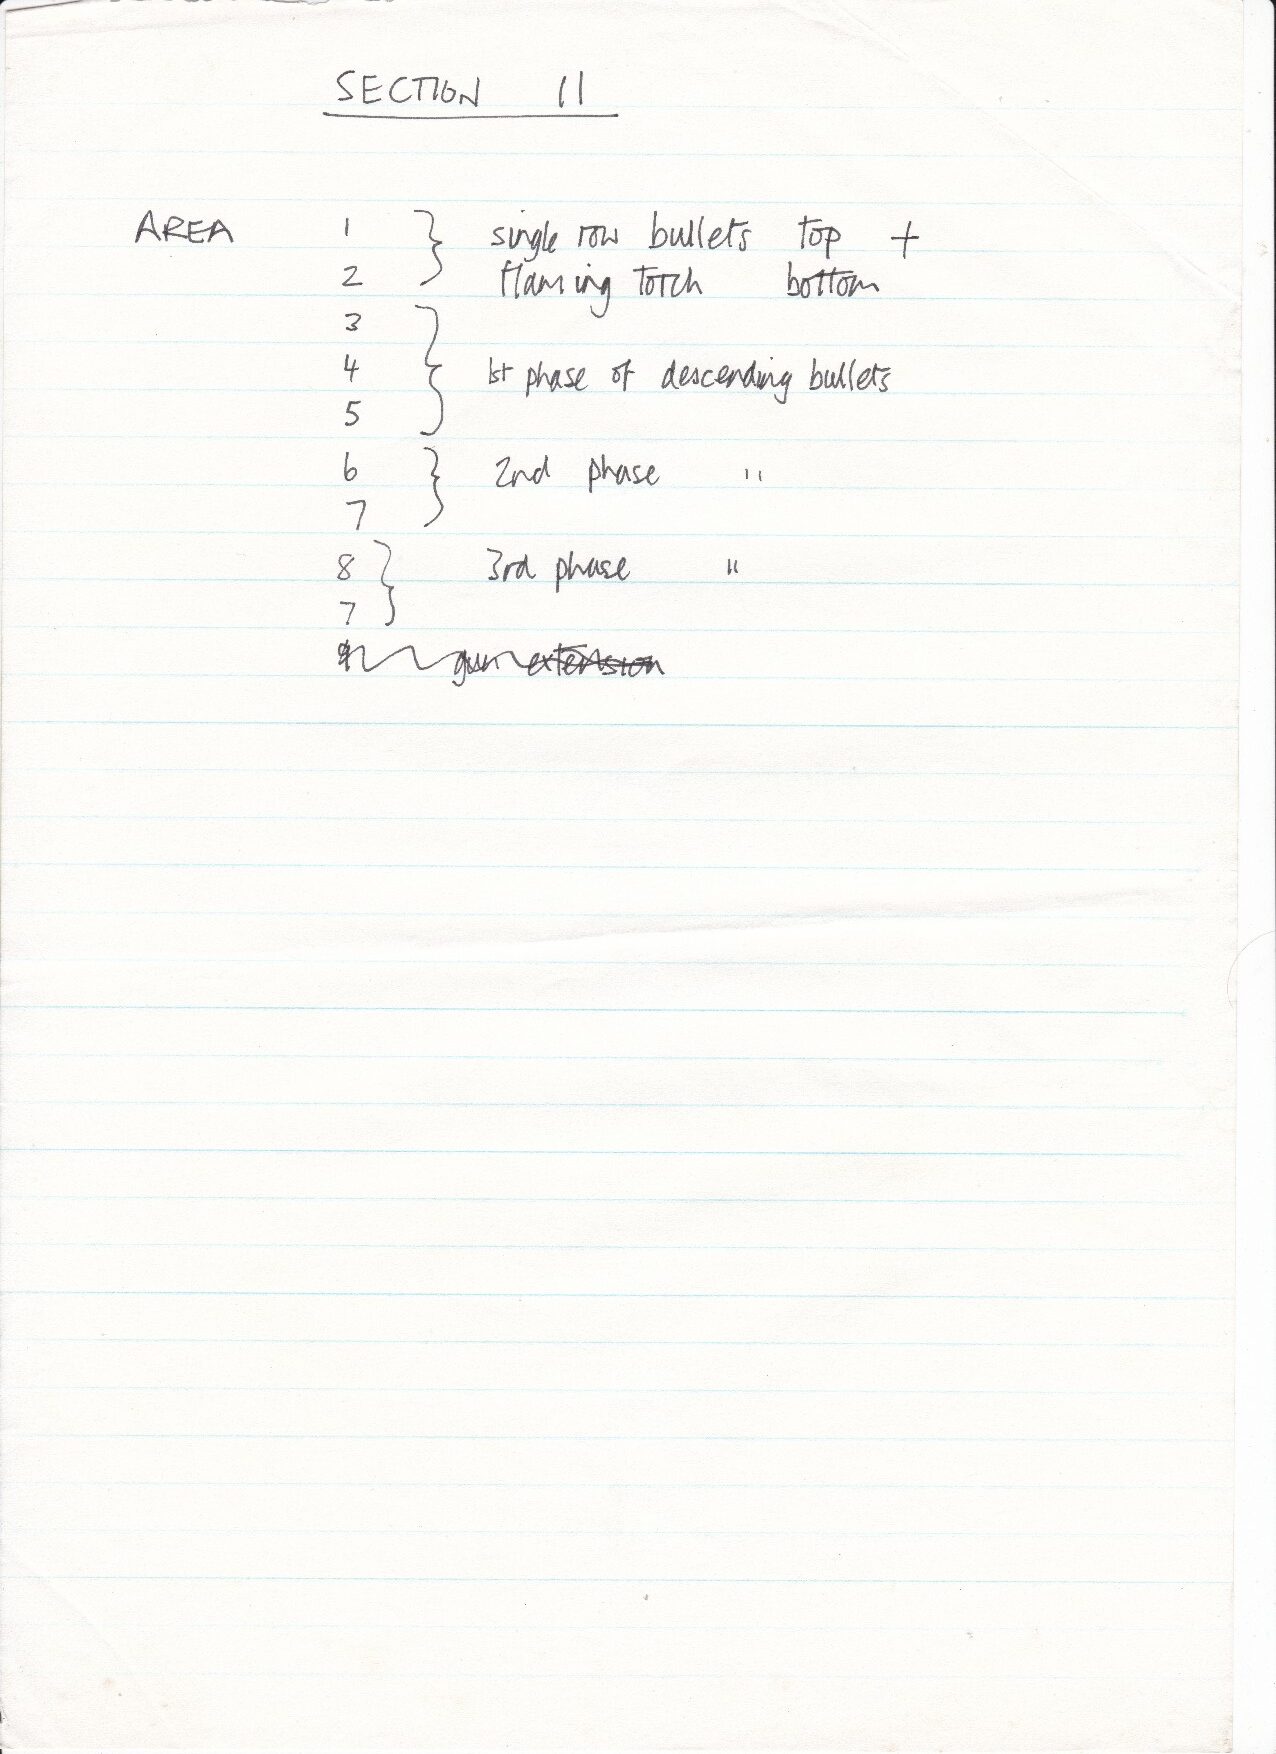 SECTION 11
AREA 1 } single row bullets top +
2 flaming torch bottom
3 }
4 1st phase of descending bullets
5
6 } 2nd phase "
7
8 } 3rd phase "
7
gun extension